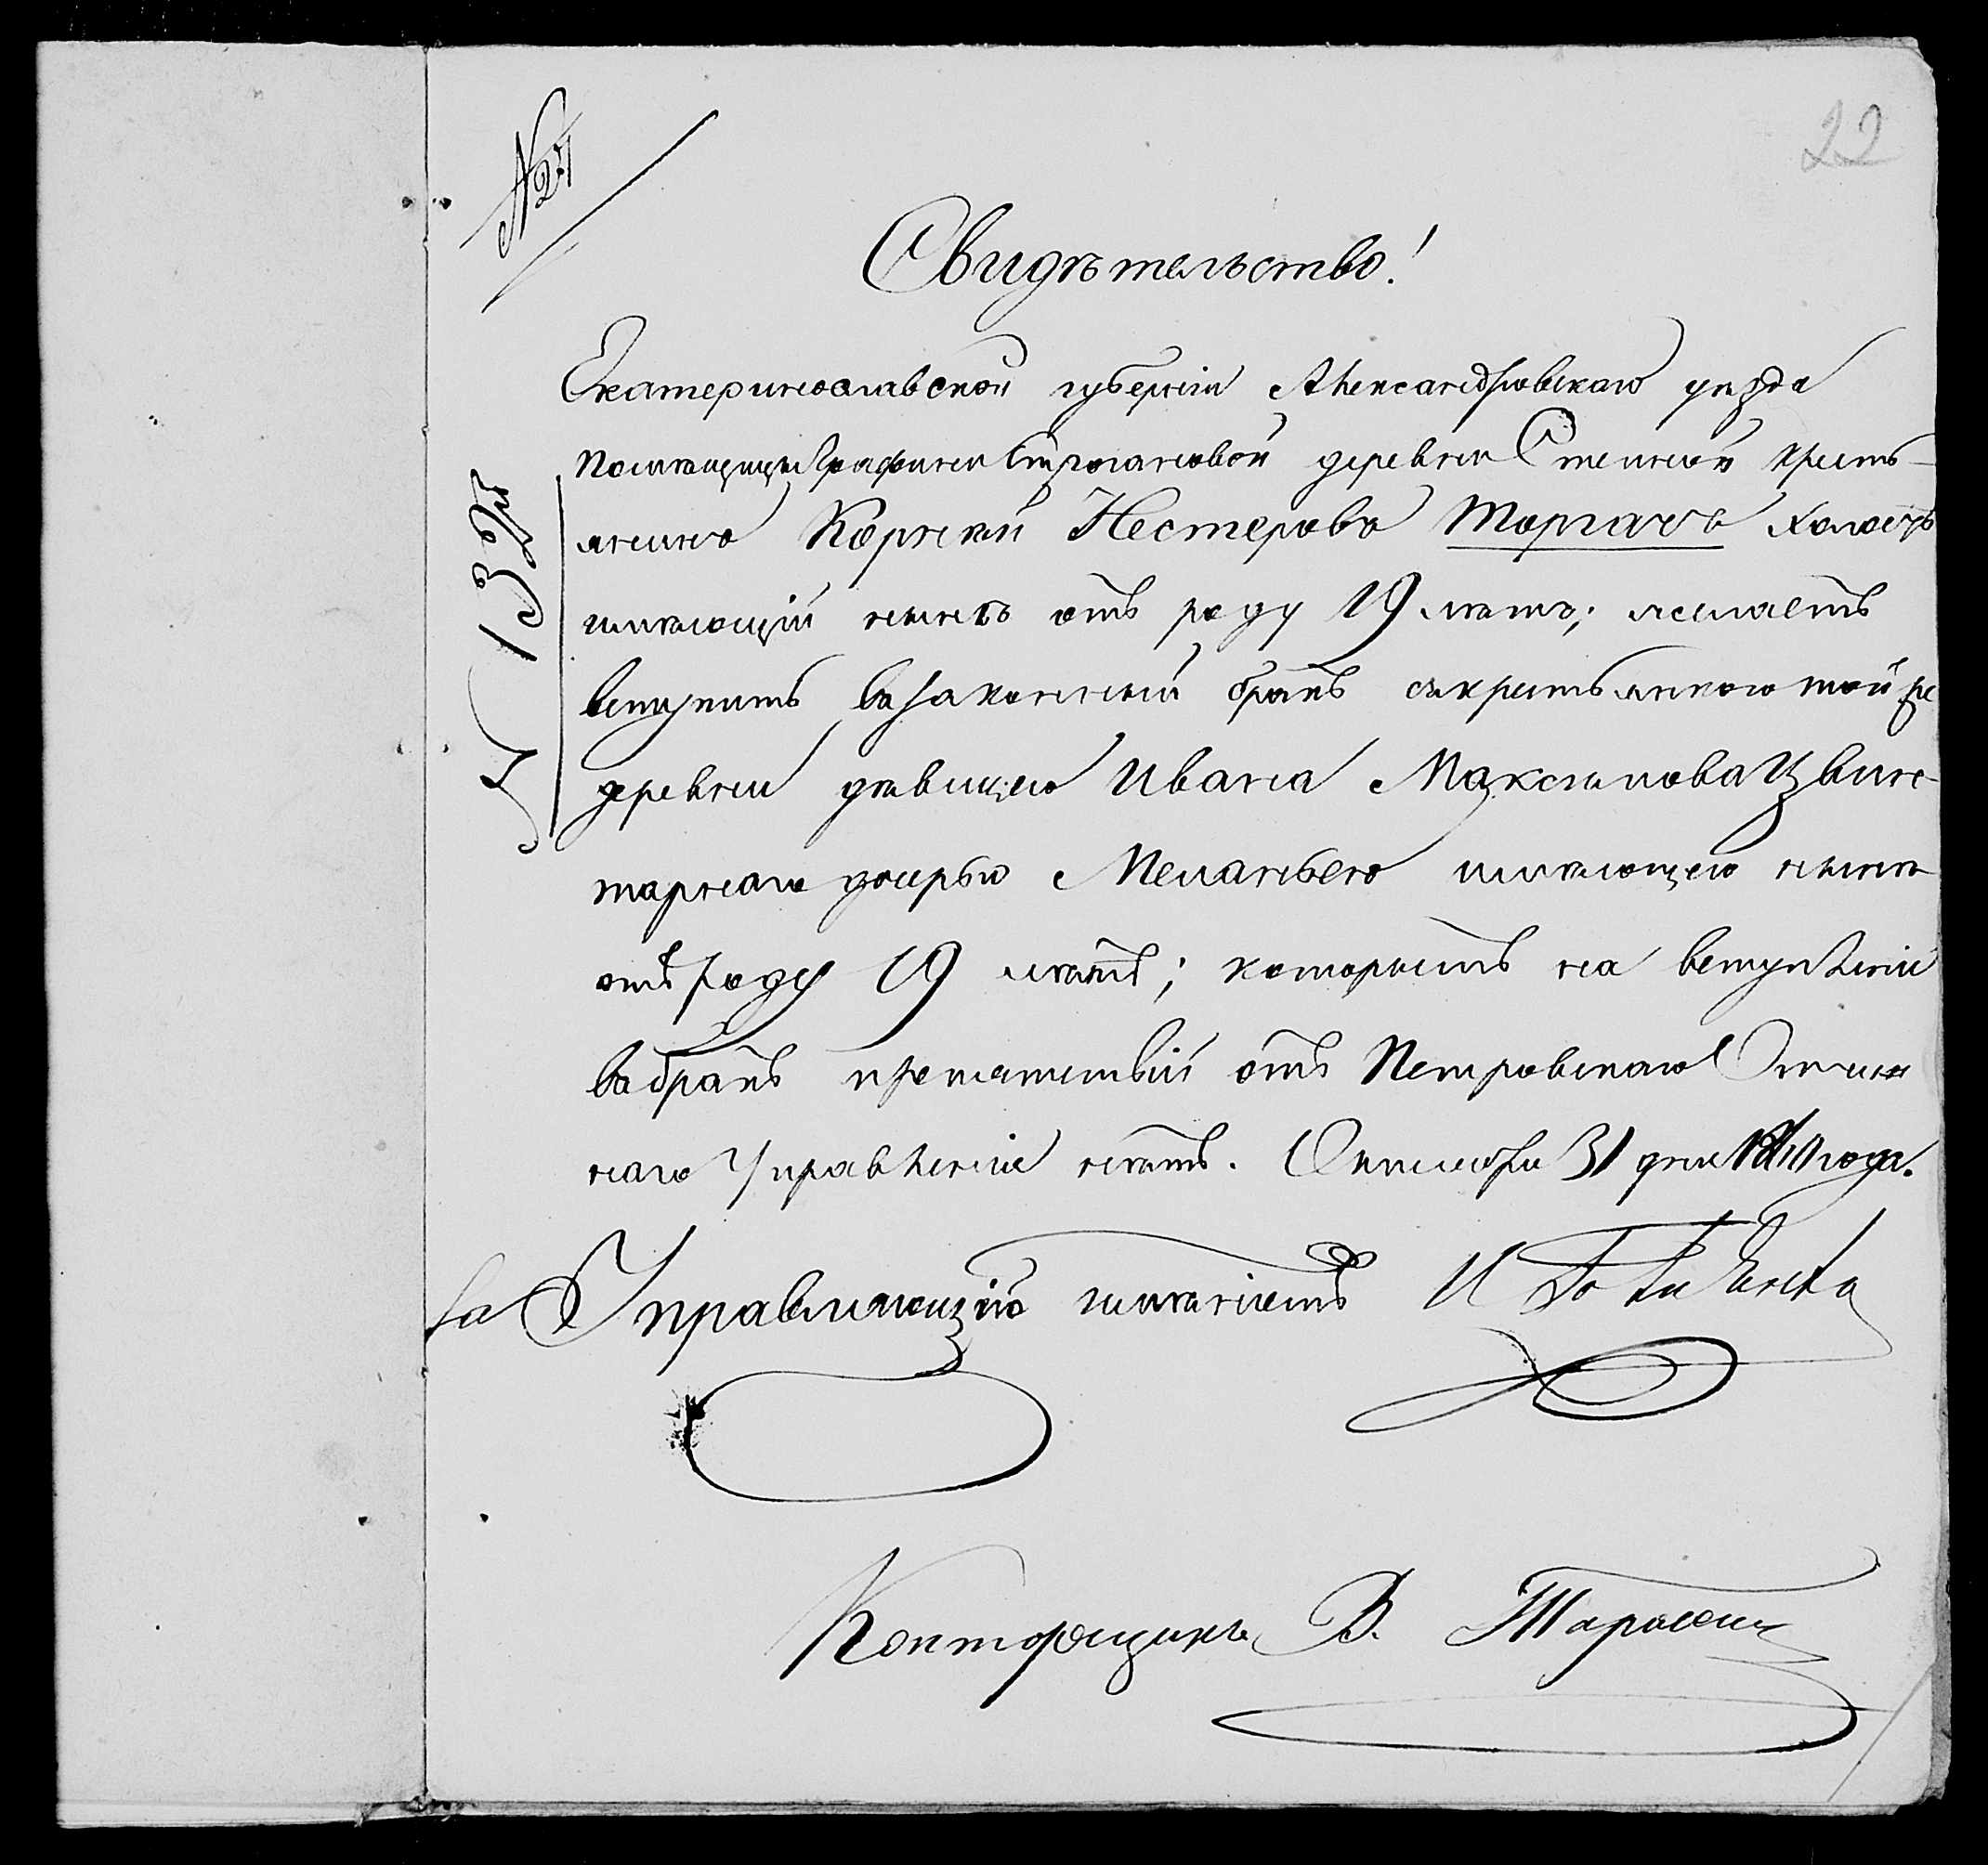 22
№ 24
Свидѣтельство!
Екатеринославской губерніи Александровскаго уѣзда
помѣщицы Графини Строгановой деревни Степной кресть-
янинъ Корней Нестеровъ Торгачъ холостъ
имѣющій нынѣ отъ роду 19 лѣтъ; желаетъ
вступить в законный бракъ съ крестьянкою той же
деревни дѣвицею Ивана Максимова Цвин-
тарнаго дочерью Меланьею имѣющею нынѣ
отъ роду 19 лѣтъ; которымъ на вступленіе
в бракъ препятствій отъ Петровскаго Вотчин
наго Управленія нѣтъ. Октября 31 дня года.
За Управляющаго имѣніемъ И
Конторщикъ В. Тарасенко